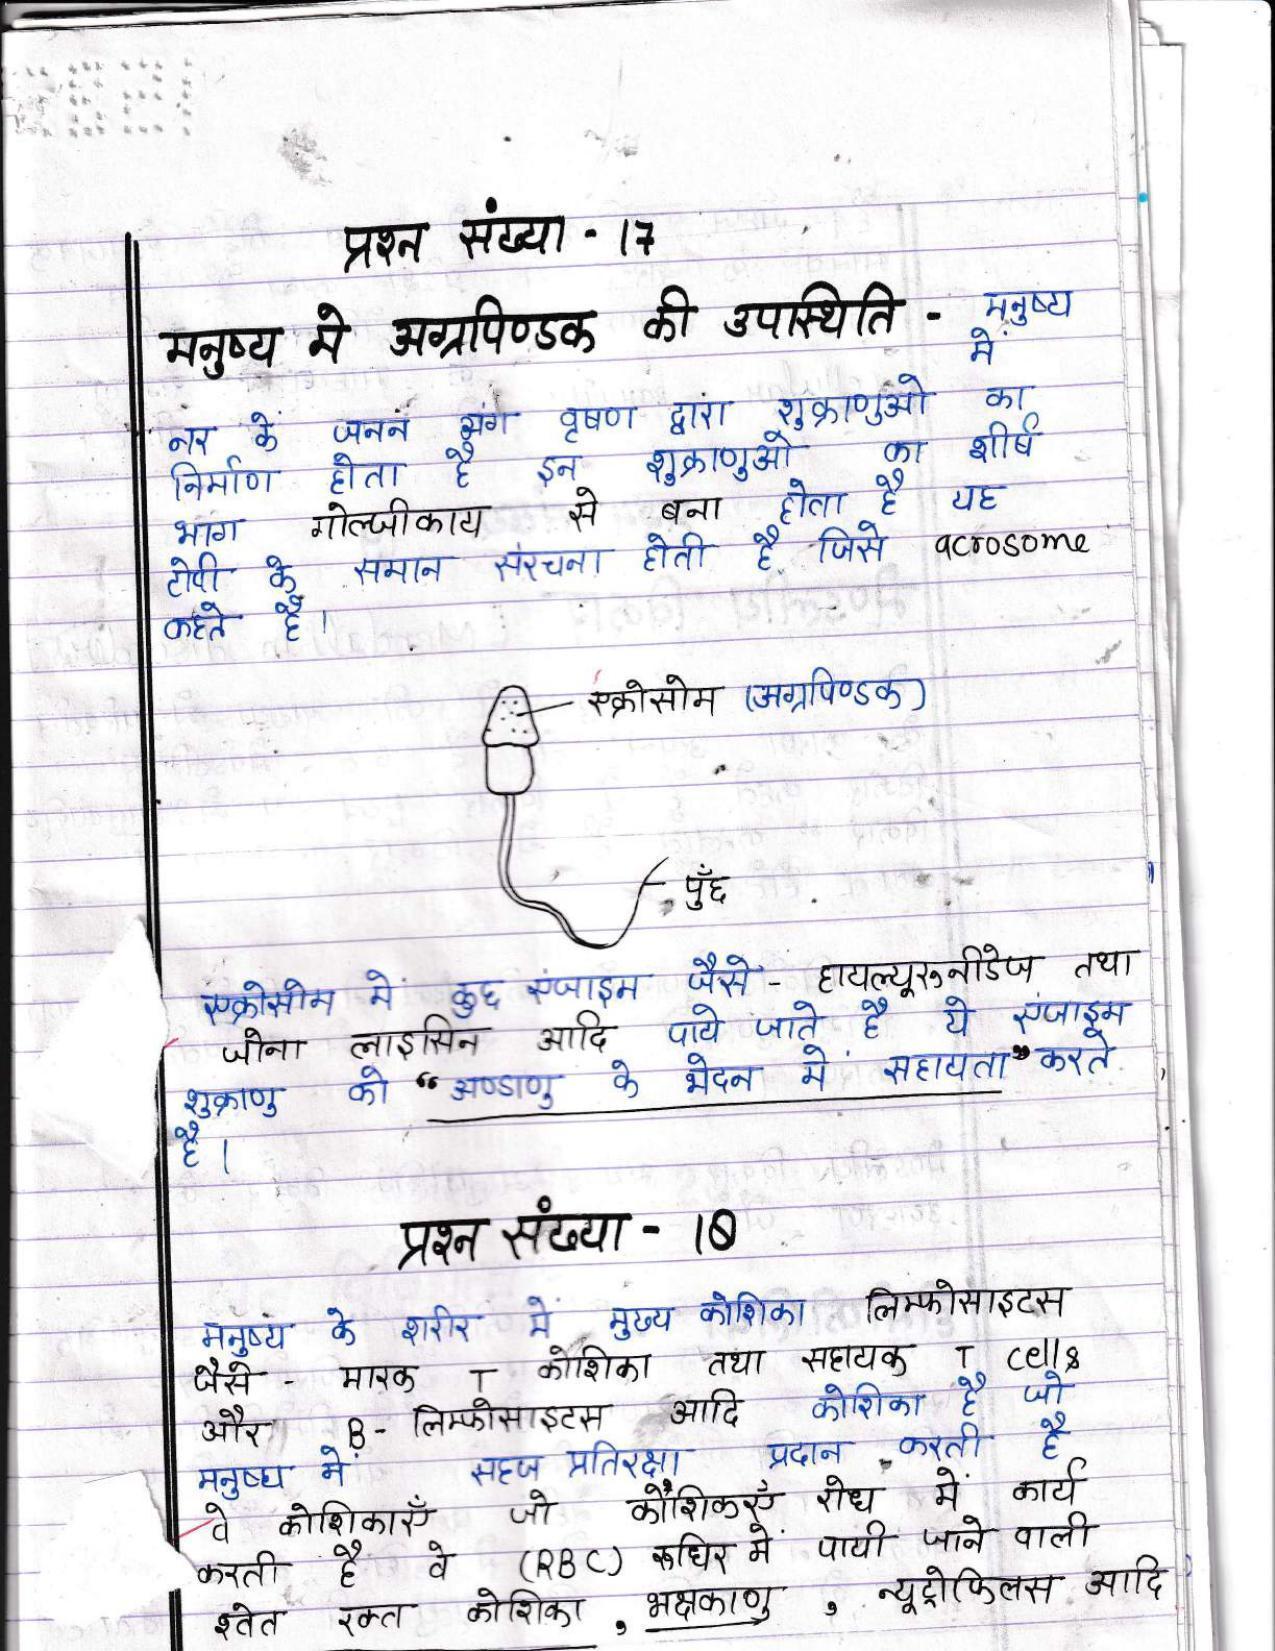 प्रश्न संख्या - 17
मनुष्य में अग्रपिण्डक की उपास्थिति - मनुष्य
में
नर के जनन अंग वृषण द्वारा शुक्राणुओ का
निर्माण होता है इन शुक्राणुओ का शीर्ष
भाग गोल्जीकाय से बना होता है यह
टोपी के समान संरचना होती है जिसे acrosome
कहते है।
एक्रोसोम (अग्रपिण्डक)
पुँछ
एक्रोसोम में कुछ एंजाइम जैसे - हायल्यूरुनीडेज तथा
जोना लाइसिन आदि पाये जाते है ये एंजाइम
शुक्राणु को "अण्डाणु के भेदन में सहायता" करते
है।
प्रश्न संख्या - 18
मनुष्य के शरीर में मुख्य कोशिका लिम्फोसाइटस
जैसे - मारक T कोशिका तथा सहायक T cells
और B- लिम्फोसाइटस आदि कोशिका है जो
मनुष्य में सहज प्रतिरक्षा प्रदान करती है
वे कोशिकाएँ जो कोशिकएँ रोध में कार्य
करती है वे (RBC) रूधिर में पायी जाने वाली
श्वेत रक्त कोशिका, भक्षकाणु, न्यूट्रोफिलस आदि